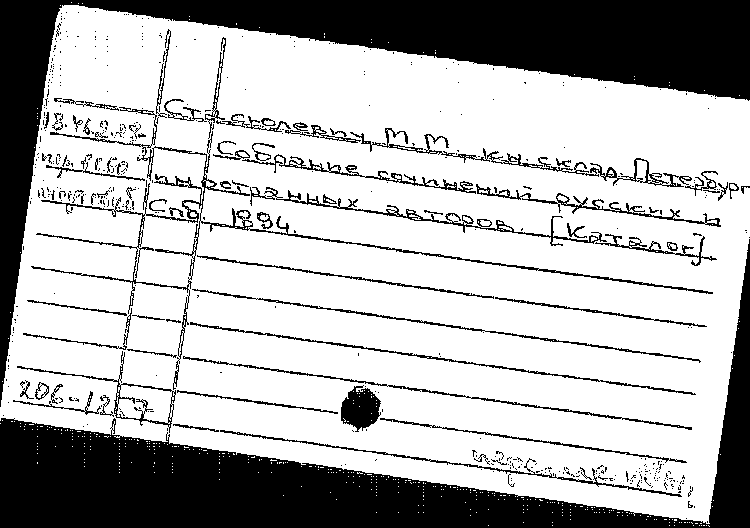 Стасюлевич, М.М., кн. склад, Петербург
18.46.2.
Собрание сочинений русских и
иностранных авторов. [Каталог].
Спб., 1894.
206-1257